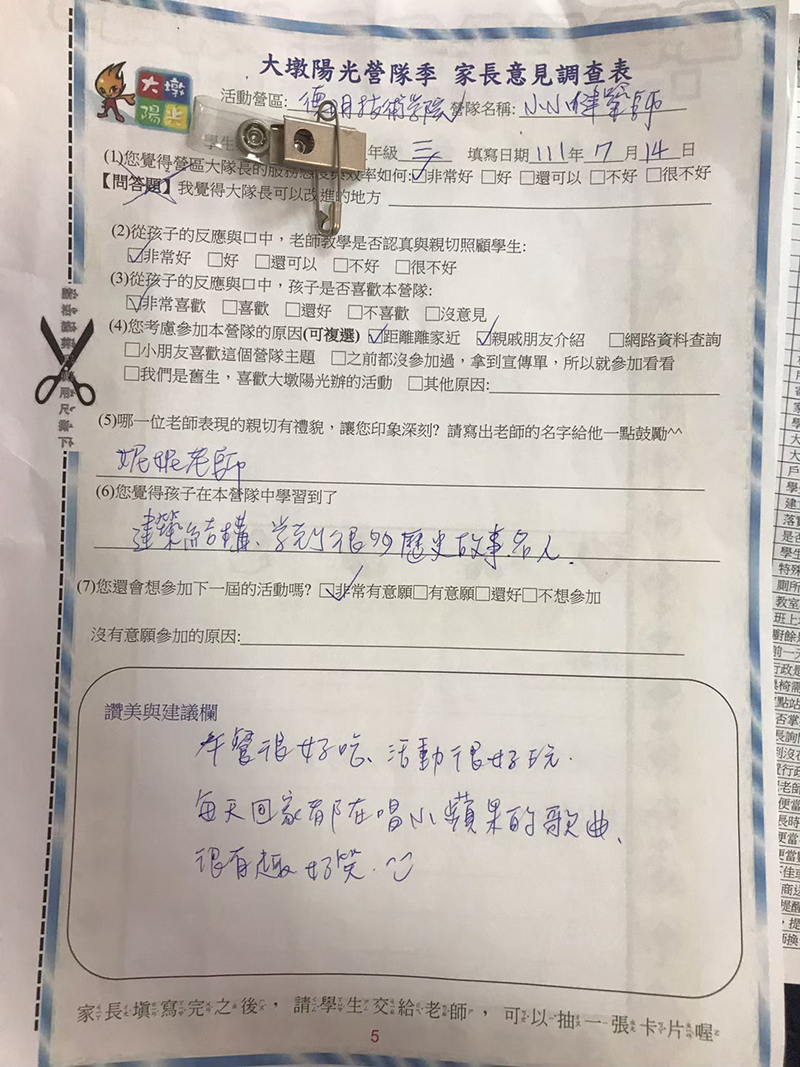 大墩陽光營隊季 家長意見調查表
大墩
陽光
活動營區: 德明技術學院 營隊名稱: 小小建築師
學生 年級 三 填寫日期 111年 7 月 14 日
(1)您覺得營區大隊長的服務態度與效率如何: ☑非常好 □好 □還可以 □不好 □很不好
【問答題】我覺得大隊長可以改進的地方
(2)從孩子的反應與口中，老師教學是否認真與親切照顧學生:
☑非常好 □好 □還可以 □不好 □很不好
(3)從孩子的反應與口中，孩子是否喜歡本營隊:
☑非常喜歡 □喜歡 □還好 □不喜歡 □沒意見
(4)您考慮參加本營隊的原因(可複選) ☑距離離家近 ☑親戚朋友介紹 □網路資料查詢
□小朋友喜歡這個營隊主題 □之前都沒參加過，拿到宣傳單，所以就參加看看
□我們是舊生，喜歡大墩陽光辦的活動 □其他原因:
(5)哪一位老師表現的親切有禮貌，讓您印象深刻? 請寫出老師的名字給他一點鼓勵^^
妮妮老師
(6)您覺得孩子在本營隊中學習到了
建築結構、學到很多歷史故事名人.
(7)您還會想參加下一屆的活動嗎? ☑非常有意願□有意願□還好□不想參加
沒有意願參加的原因:
讚美與建議欄
午餐很好吃、活動很好玩.
每天回家都在唱小蘋果的歌曲、
很有趣好笑.
家長填寫完之後，請學生交給老師，可以抽一張卡片喔
5